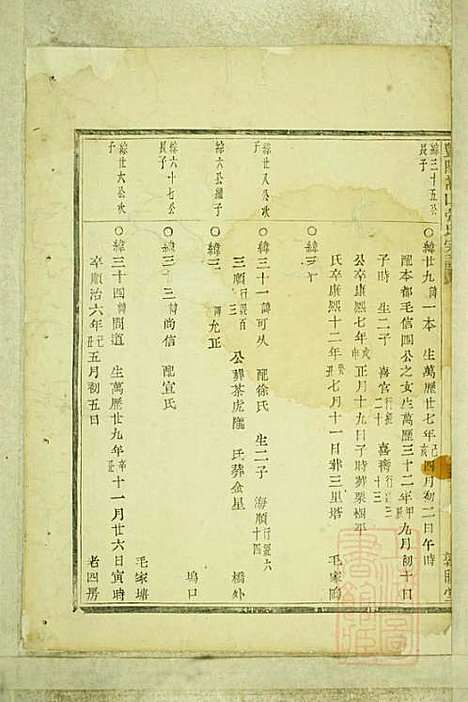 綜三十五公
長子
○緯廿九諱一本 生萬歷廿七年己亥四月初二日午時
配本都毛信閏公之女生萬歷三十二年甲九月初十日
子時 生二子 喜官行經二十 喜 行經三十
公卒康熙七年戊申正月十九日子時葬栗樹平
氏卒康熙十二年癸七月十一日葬三里塔
毛家塢
○緯三十
綜廿八公次
子
○緯三十一諱可从 配徐氏 生二子 海順行經六十四
三順行經百 公葬茶虎隴 氏葬金星
橋外
綜六公繼子
○緯三 諱允正
塢口
綜六十七公
長子
○緯三十三諱尚信 配宣氏
毛家塘
綜廿六公次
子
○緯三十四諱問道 生萬歷廿九年辛丑十一月廿六日寅時
卒順治六年己丑五月初五日
老四房